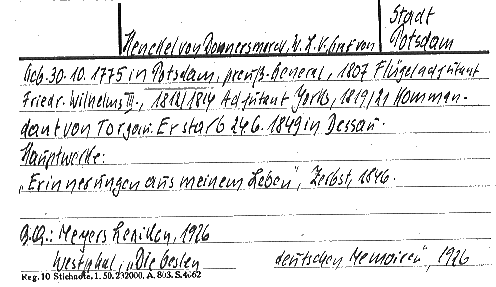 Stadt
Potsdam
Henckel von Donnersmarck, W. L. V. Graf von
Geb. 30. 10. 1775 in Potsdam, preuß. General, 1807 Flügeladjutant
Friedr. Wilhelms III., 1812/1814 Adjutant Yorks, 1819/21 Komman-
dant von Torgau. Er starb 24. 6. 1849 in Dessau.
Hauptwerke:
„Erinnerungen aus meinem Leben", Zerbst, 1846.
B.Q.: Meyers Lexikon, 1926
Westphal, „Die besten deutschen Memoiren", 1926
Reg. 10 Stichnote. 1. 50. 232000. A. 803. S. 4062